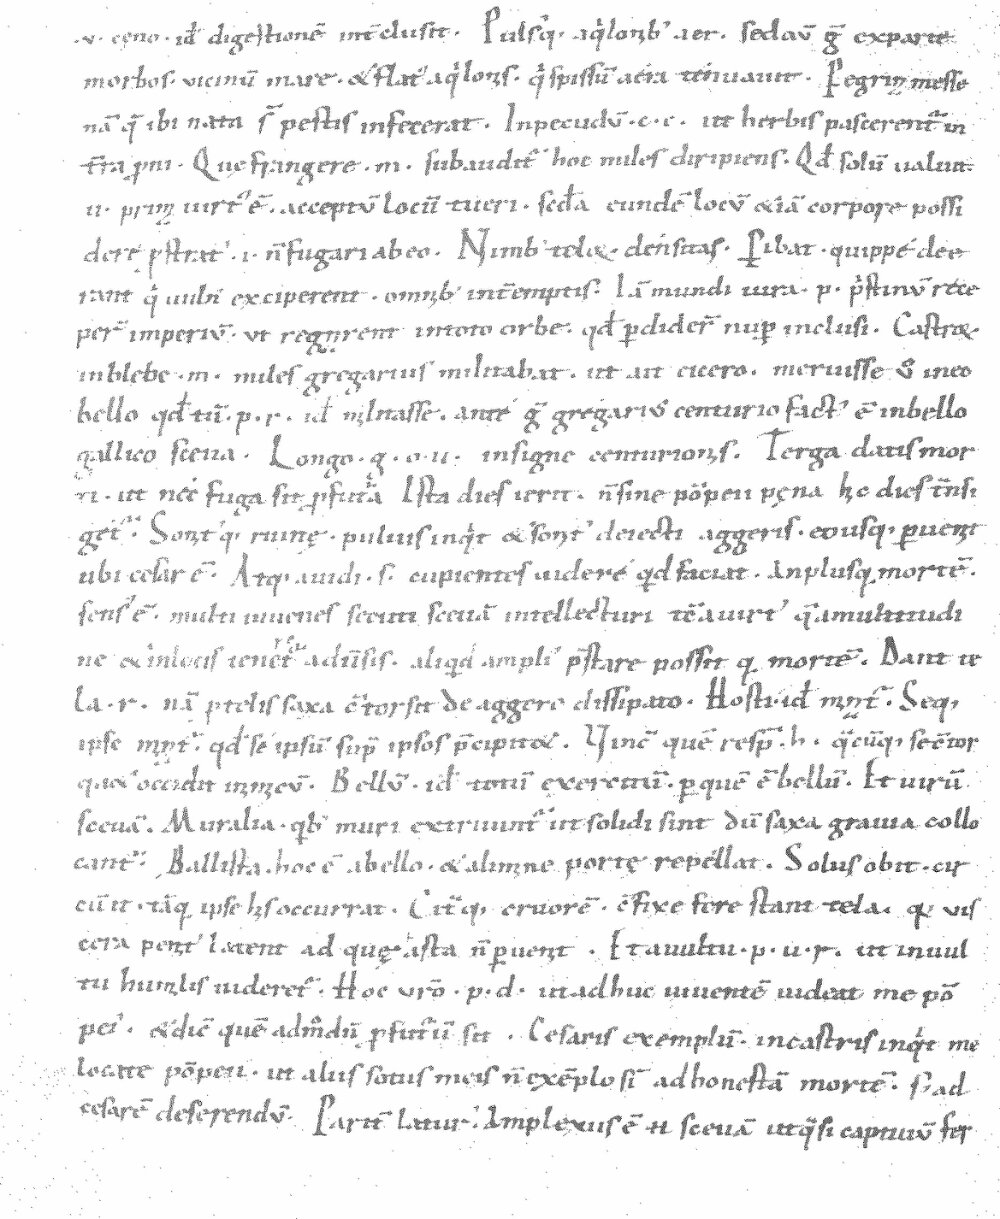 .v. ceno. id̄ digestionē int̄clusit. Pulsq; aq̇lonib; aer. sedaū g̅ exparte
morbos. vicinū mare. & flat᾽ aq̇lonis. q̇ spissū aera tenuauit. Pegrinę messe
nā q̄ ibi nata s̄ pestis infecerat. Inpecudū.c.c. ut herbis pascerent᾽ in
t̄ra pni. Quę frangere.m. subaudit᾽ hoc miles diripiens. Qd̄ solū ualuit
u. uirt᾽ ē. acceptū locū tueri. sed̄a eundē locū &iā corpore possi
dere pstrat᾽.i. n̄ fugari ab eo. Nimb᾽ tel&. densitas. Libat. quippe dee
rant q̇ uulni exciperent. omnib; int̄emptis. Iā mundi iura.p. ṗstinū rece
per̄ imperiū. vt regnrent intoto orbe. qd̄ pdider̄ nup inclusi. Castroꝝ
inblebe.m. miles gregarius militabat. ut ait cicero. meruisse ineo
bello qd̄ tū.p.r. id̄ militasse. ante g̅ gregariū centurio fact᾽ ē inbello
gallico sceua. Longo.g.o.u. insigne centurionis. Terga datis mor
ti. ut nec fuga sit pfutᷓa Ista dies ierit. n̄ sine pōpeii pęna hc dies t̄nsi
get᾽. Sonitq; ruinę. puluis inq̇t & sonit᾽ deiecti aggeris. eousq; puenit
ubi cesar ē. Atq; auidi.s. cupientes uidere qd̄ faciat. Anplusq; mortē.
sens᾽ ē. multi iuuenes secuti sceuā intellecturi tē. a uirt᾽ q̄ a multitudi
ne & inlocis adūsis. aliqd̄ ampli᾽ p̄stare possit q̄ mortē. Dant te
la.r. nā ptelis saxa c̄torsit De aggere dissipato. Hosti. id̄ mint᾽. Seq;
ipse mint᾽. qd̄ se ipsū sup ipsos p̄cipit&. Hinc quē resp̄.h. q̄cūq; sec̄tor
qu& occidit inimicū. Bellū. id̄ totū exercitū. p quē ē bellū. Et uirū
sceuā. Muralia. qb᾽ muri extruunt᾽ ut solidi sint dū saxa grauia collo
cant᾽. Ballista. hoc ē abello. & a limine portę repellat. Solus obit. cir
cūit. tāq; ipse his occurrat. Cit̄q; cruorē. c̄fixe fere stant tela. q̄ vis
cera penit᾽ latent ad quę asta n̄ puenit. Et auultu.p.u.r. ut inuul
tu humilis uideret᾽. Hoc vrō.p.d. ut adhuc uiuentē uideat me pō
pei᾽. & dic̄ quē admodū pfuturū sit. Cesaris exemplū. incastris inq̇t me
locate pōpeii. ut aliis sotus meis n̄ exēplo sī ad honestā mortē. s; ad
cesarē deserendū. Parit̄ latur᾽. Amplexus ē u sceuā utq̄si captiuū fer